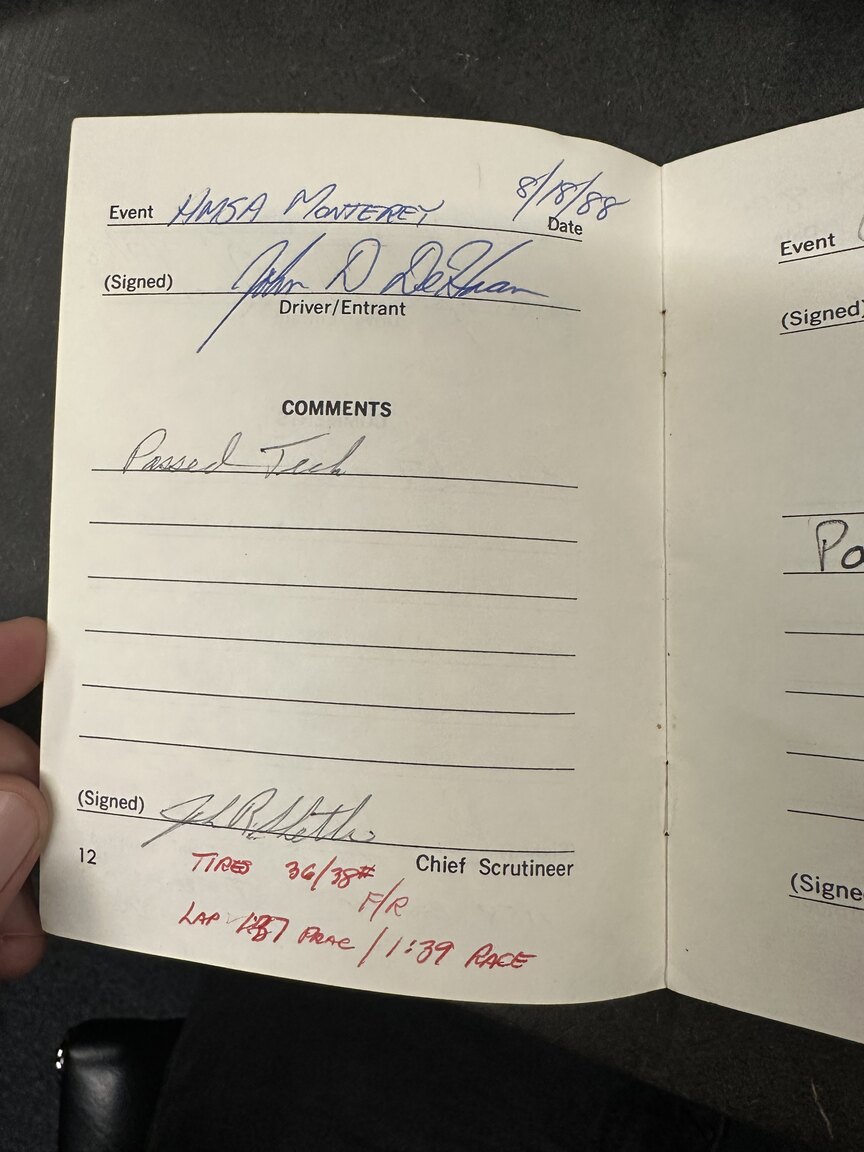 Event HMSA MONTEREY 8/18/88
Date
(Signed) John D DeHaan
Driver/Entrant
COMMENTS
Passed Tech
(Signed) John
12 Chief Scrutineer
TIRES 36/38#
F/R
LAP PRAC / 1:39 RACE
Event
(Signed)
Po
(Signe